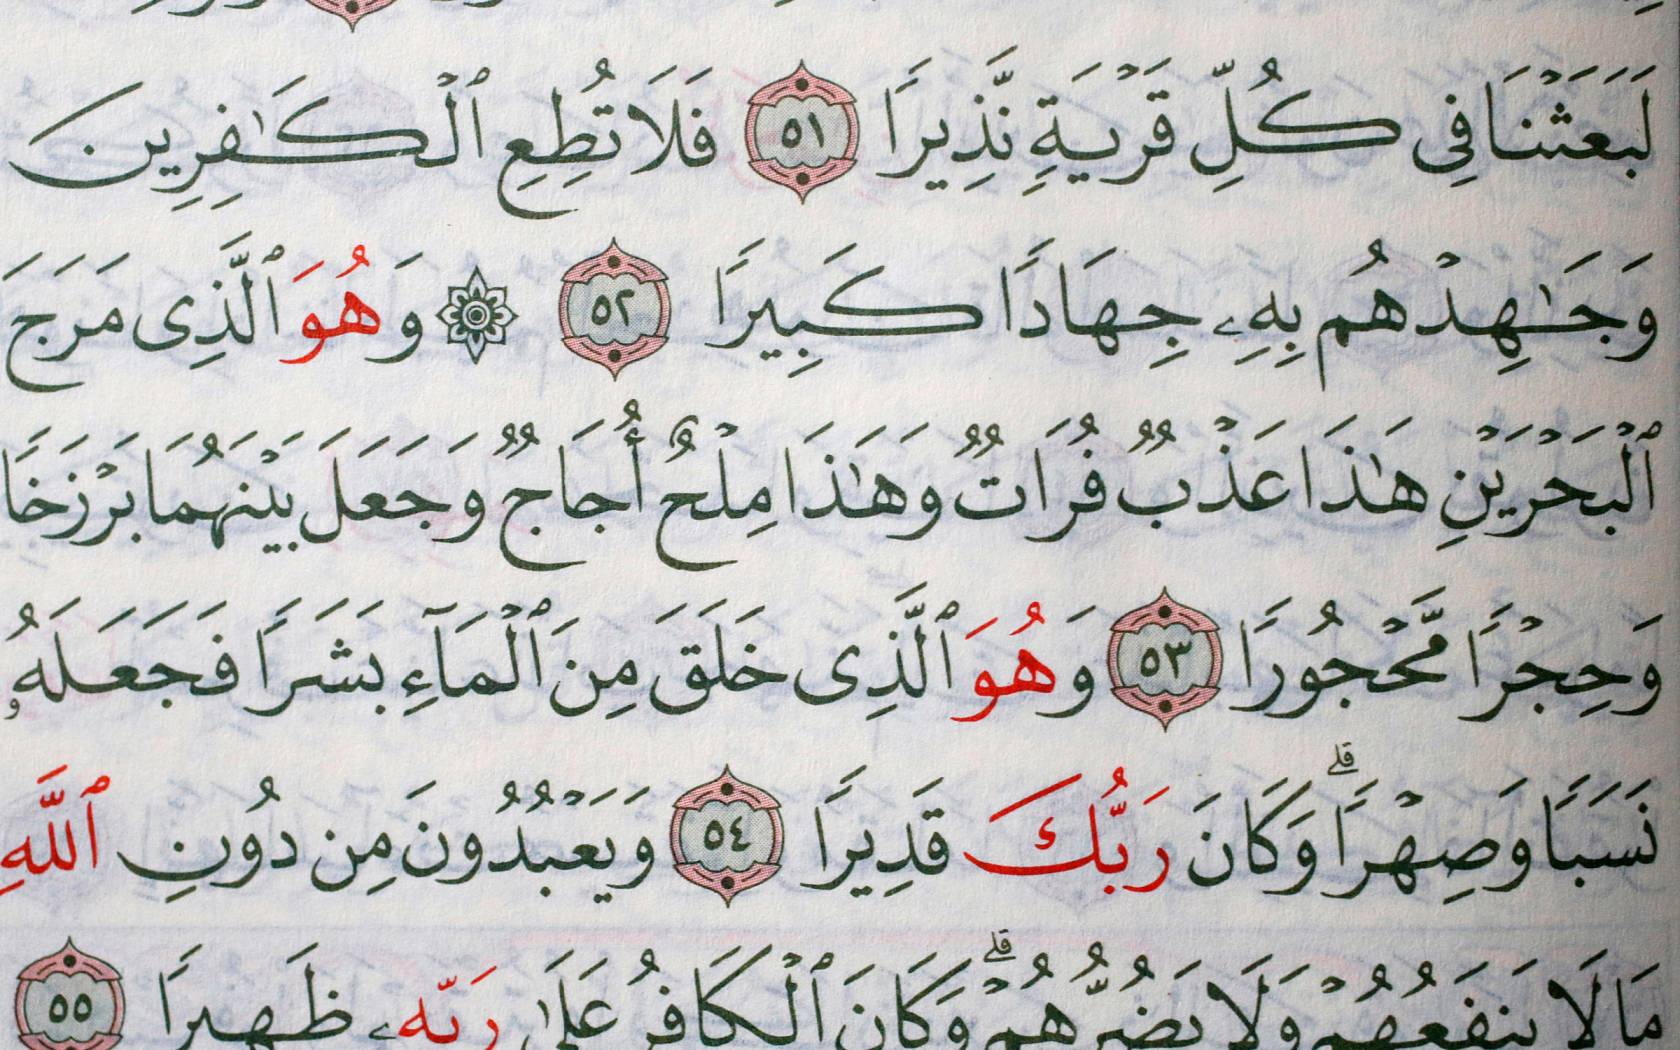 لَبَعَثْنَا فِى كُلِّ قَرْيَةٍ نَّذِيرًا ٥١ فَلَا تُطِعِ ٱلْكَـٰفِرِينَ
وَجَـٰهِدْهُم بِهِۦ جِهَادًا كَبِيرًا ٥٢ ۞ وَهُوَ ٱلَّذِى مَرَجَ
ٱلْبَحْرَيْنِ هَـٰذَا عَذْبٌ فُرَاتٌ وَهَـٰذَا مِلْحٌ أُجَاجٌ وَجَعَلَ بَيْنَهُمَا بَرْزَخًا
وَحِجْرًا مَّحْجُورًا ٥٣ وَهُوَ ٱلَّذِى خَلَقَ مِنَ ٱلْمَآءِ بَشَرًا فَجَعَلَهُۥ
نَسَبًا وَصِهْرًا ۗ وَكَانَ رَبُّكَ قَدِيرًا ٥٤ وَيَعْبُدُونَ مِن دُونِ ٱللَّهِ
مَا لَا يَنفَعُهُمْ وَلَا يَضُرُّهُمْ ۗ وَكَانَ ٱلْكَافِرُ عَلَىٰ رَبِّهِۦ ظَهِيرًا ٥٥